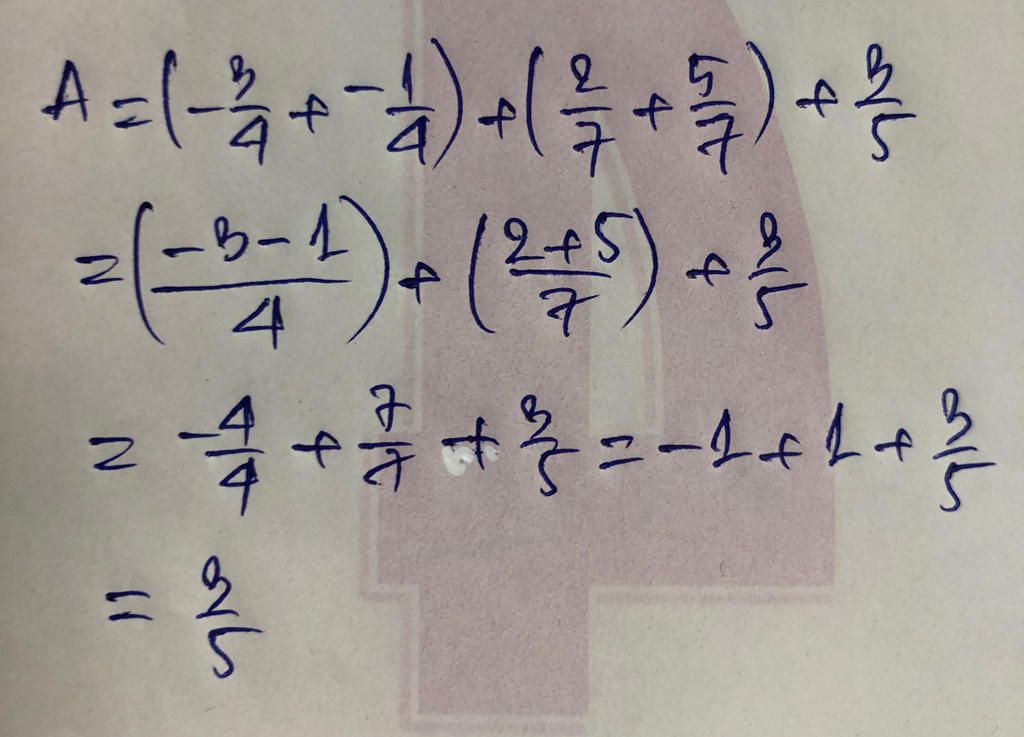 A = (-3/4 + -1/4) + (2/7 + 5/7) + 3/5
= ((-3-1)/4) + ((2+5)/7) + 3/5
= -4/4 + 7/7 + 3/5 = -1 + 1 + 3/5
= 3/5